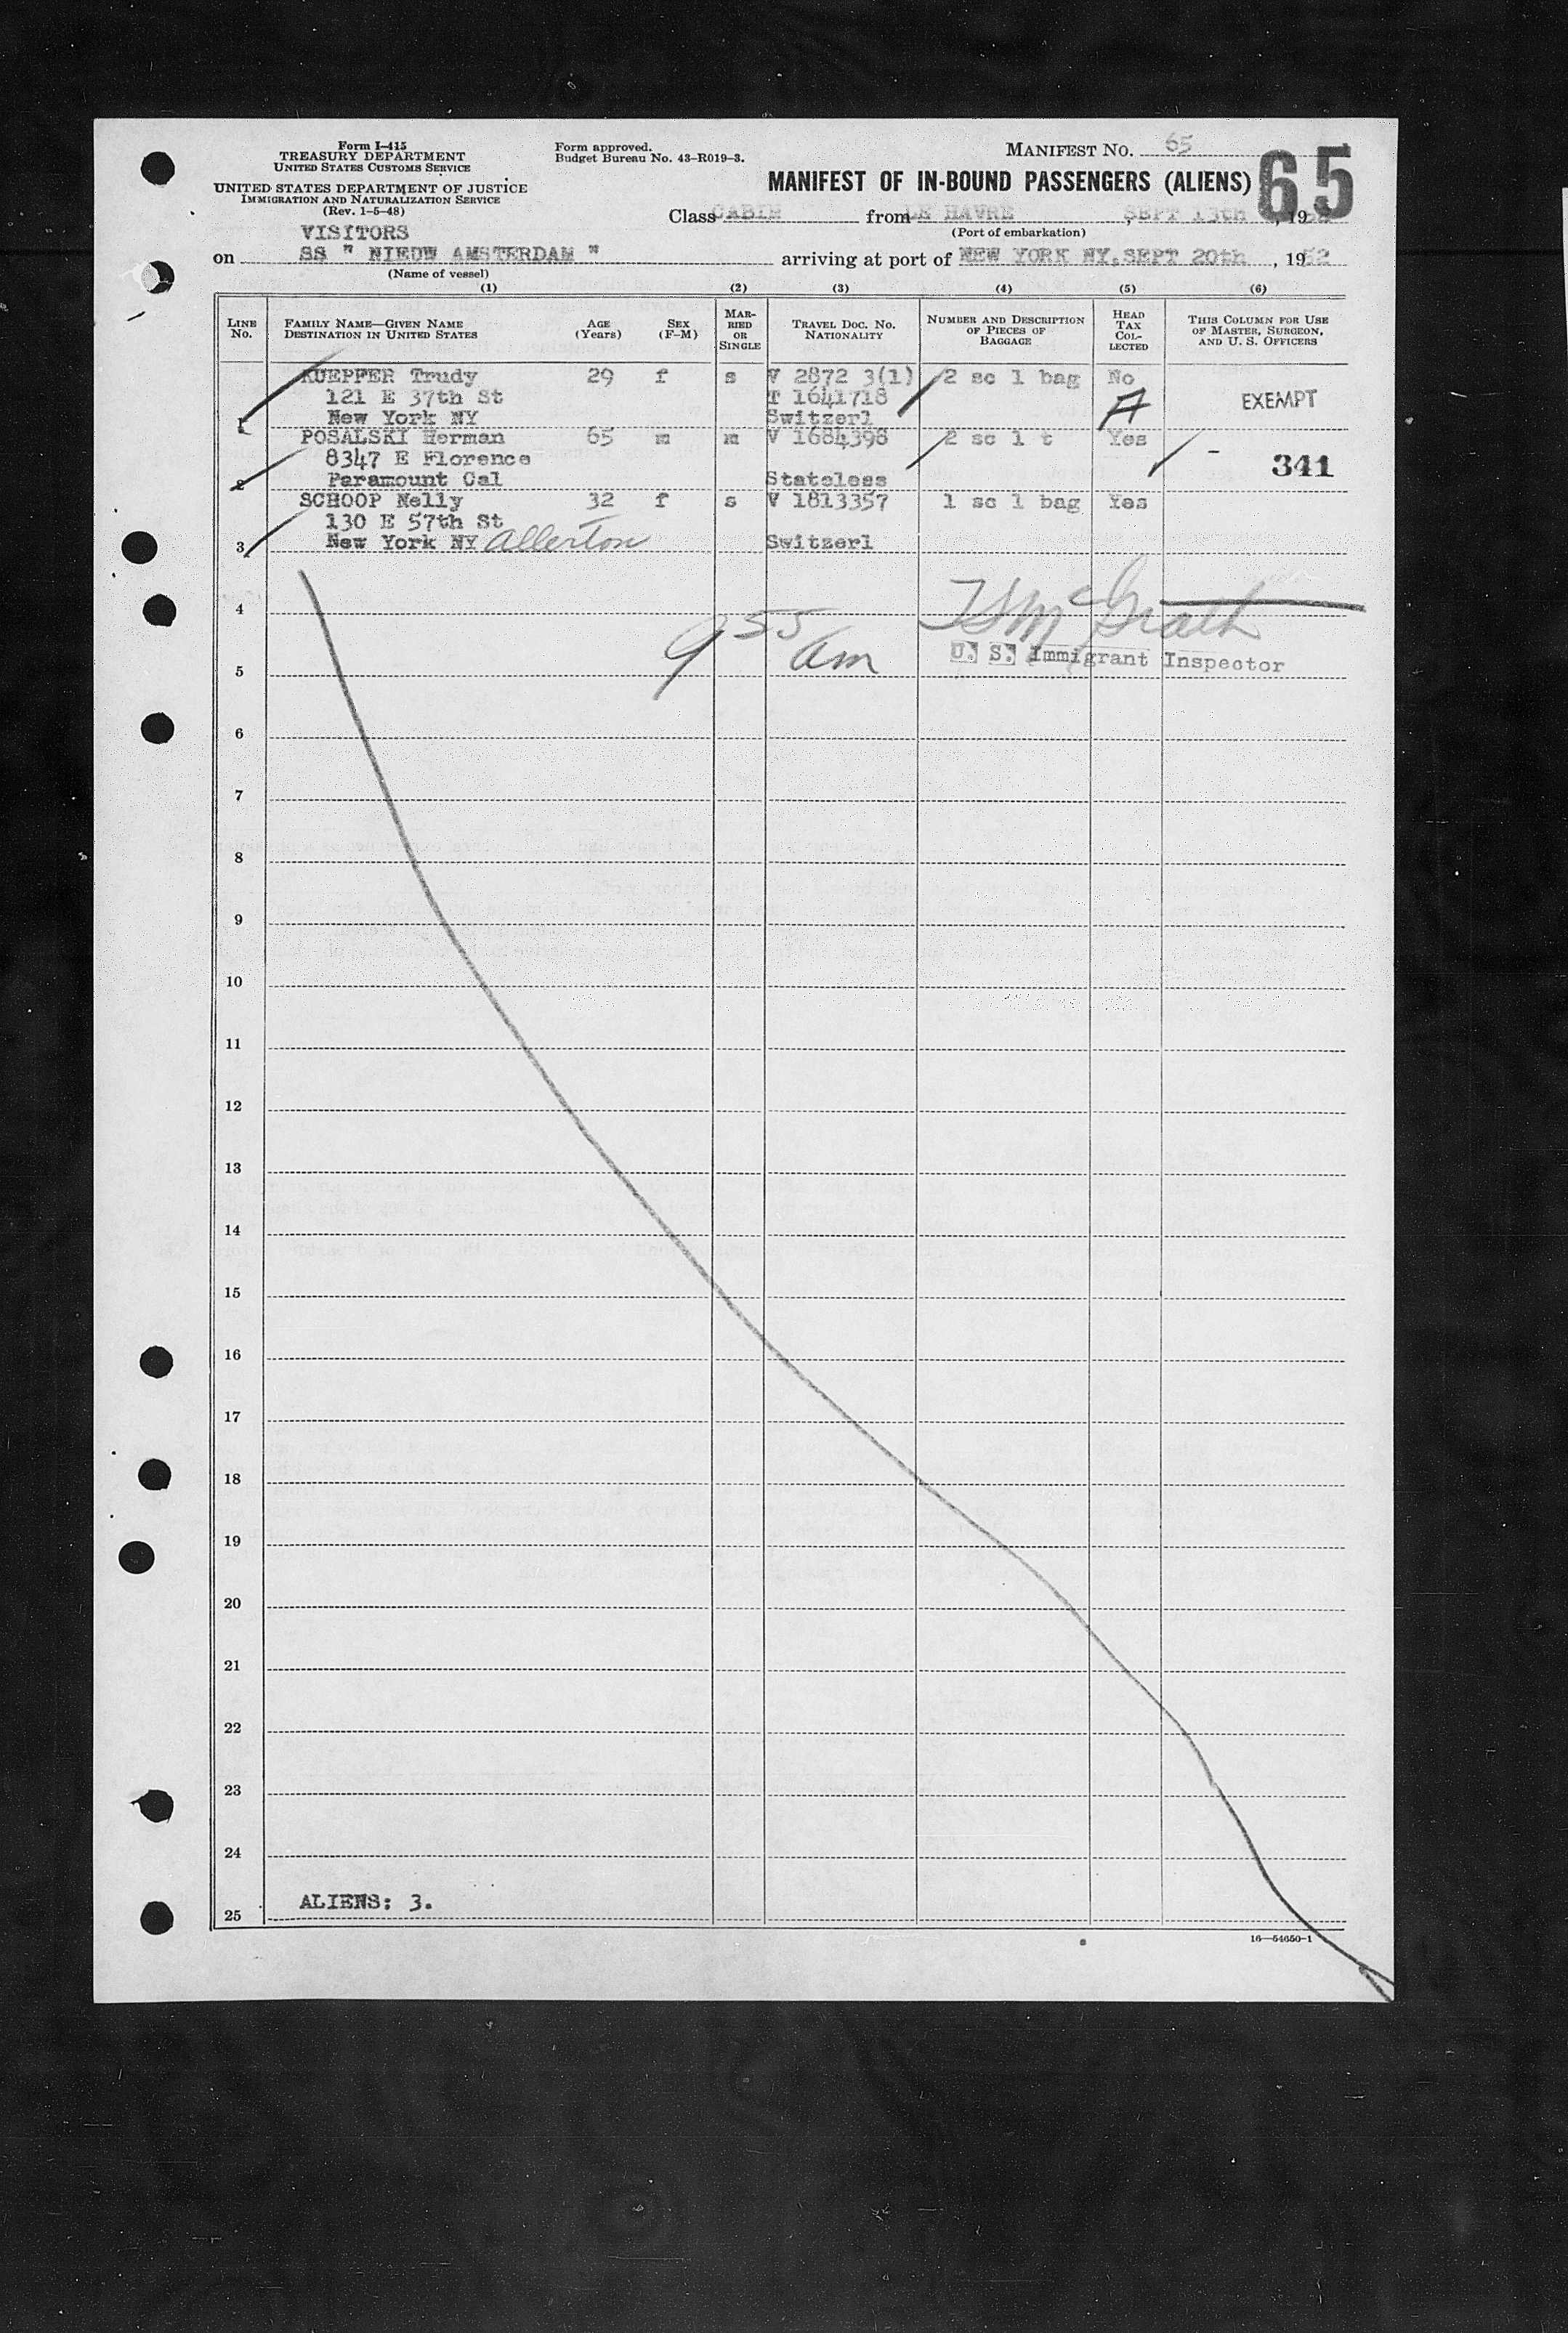 Form I-415
TREASURY DEPARTMENT
UNITED STATES CUSTOMS SERVICE
UNITED STATES DEPARTMENT OF JUSTICE
IMMIGRATION AND NATURALIZATION SERVICE
(Rev. 1-5-48)
Form approved.
Budget Bureau No. 43-R019-3.
MANIFEST NO. 65
MANIFEST OF IN-BOUND PASSENGERS (ALIENS) 65
Class CABIN from LE HAVRE, SEPT 13th, 1952
(Port of embarkation)
VISITORS
on SS " NIEUW AMSTERDAM " arriving at port of NEW YORK NY, SEPT 20th, 1952
(Name of vessel)
(1) (2) (3) (4) (5) (6)
LINE No. FAMILY NAME—GIVEN NAME DESTINATION IN UNITED STATES AGE (Years) SEX (F-M) MARRIED OR SINGLE TRAVEL DOC. NO. NATIONALITY NUMBER AND DESCRIPTION OF PIECES OF BAGGAGE HEAD TAX COLLECTED THIS COLUMN FOR USE OF MASTER, SURGEON, AND U. S. OFFICERS
KUEPFER Trudy 29 f s V 2872 3(1) 2 sc 1 bag No
121 E 37th St T 1641718 A EXEMPT
1 New York NY Switzerl
POSALSKI Herman 65 m m V 1684398 2 sc 1 t Yes
8347 E Florence - 341
2 Paramount Cal Stateless
SCHOOP Nelly 32 f s V 1813357 1 sc 1 bag Yes
130 E 57th St
3 New York NY Allerton Switzerl
4
955 am TSMcGrath
U. S. Immigrant Inspector
5
6
7
8
9
10
11
12
13
14
15
16
17
18
19
20
21
22
23
24
ALIENS: 3.
25
16—54650-1